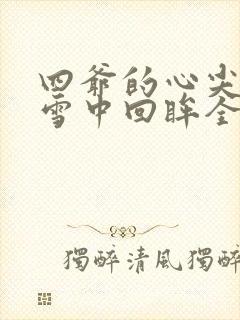 四爷的心尖
雪中回眸全
獨醉清風獨醉